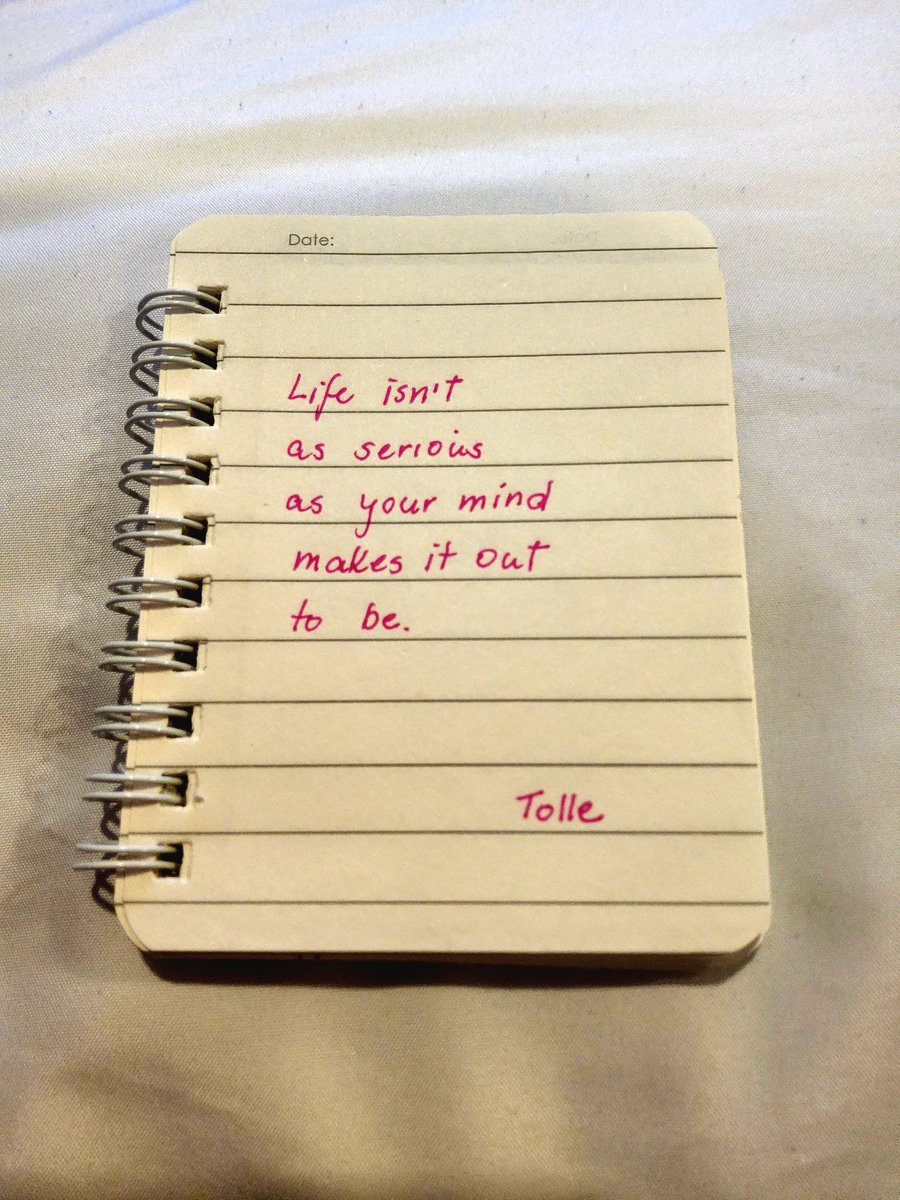 Date:
Life isn't
as serious
as your mind
makes it out
to be.
Tolle